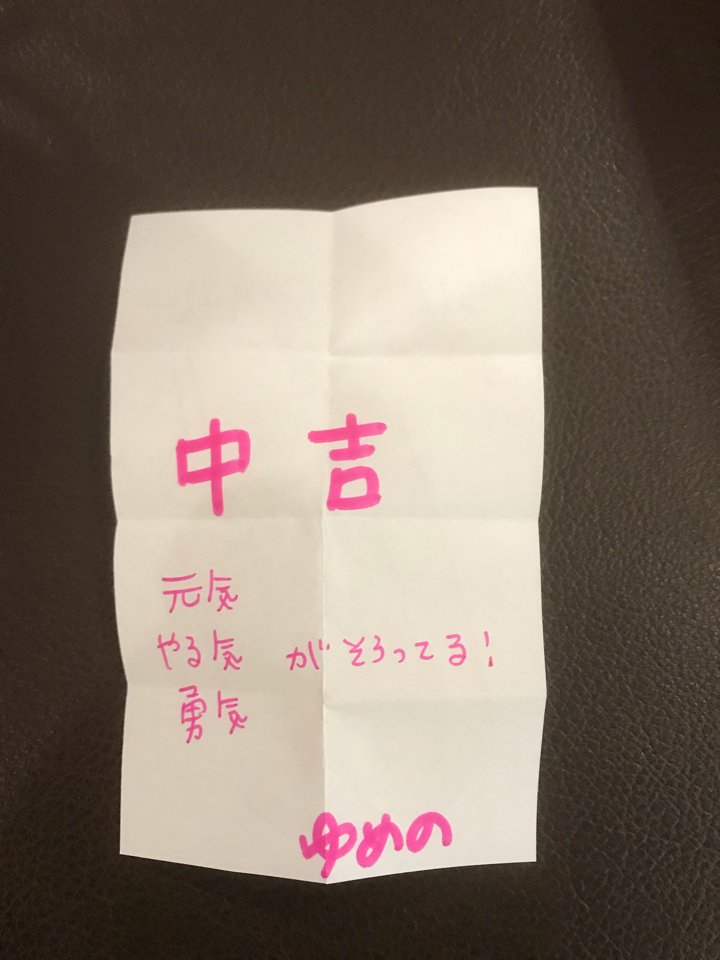 中吉
元気
やる気 がそろってる!
勇気
ゆめの